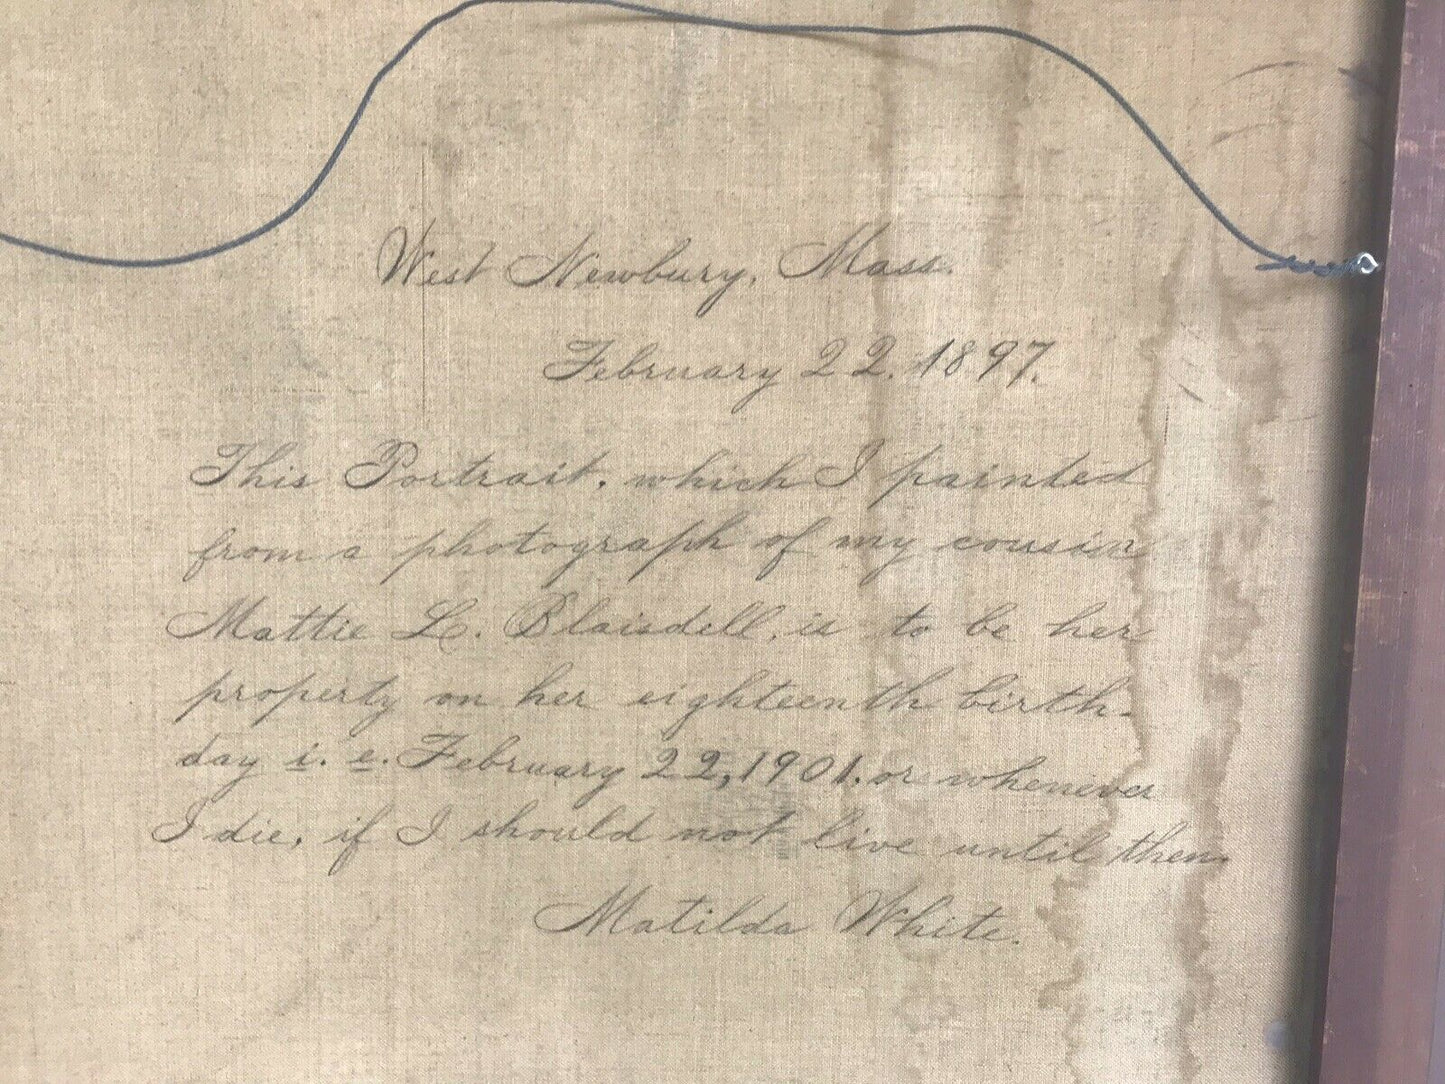 West Newbury, Mass.
February 22, 1897.
This Portrait, which I painted
from a photograph of my cousin
Mattie L. Blaisdell, is to be her
property on her eighteenth birth-
day i. e. February 22, 1901, or whenever
I die, if I should not live until then.
Matilda White.